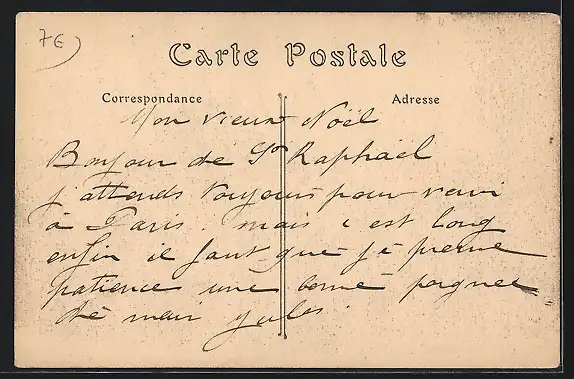 7€
Carte Postale
Correspondance
Adresse
Mon vieux Noël
Bonjour de St Raphaël
j'attends toujours pour venir
à Paris. mais c'est long
enfin il faut que je prenne
patience une bonne poignee
de main Jules.